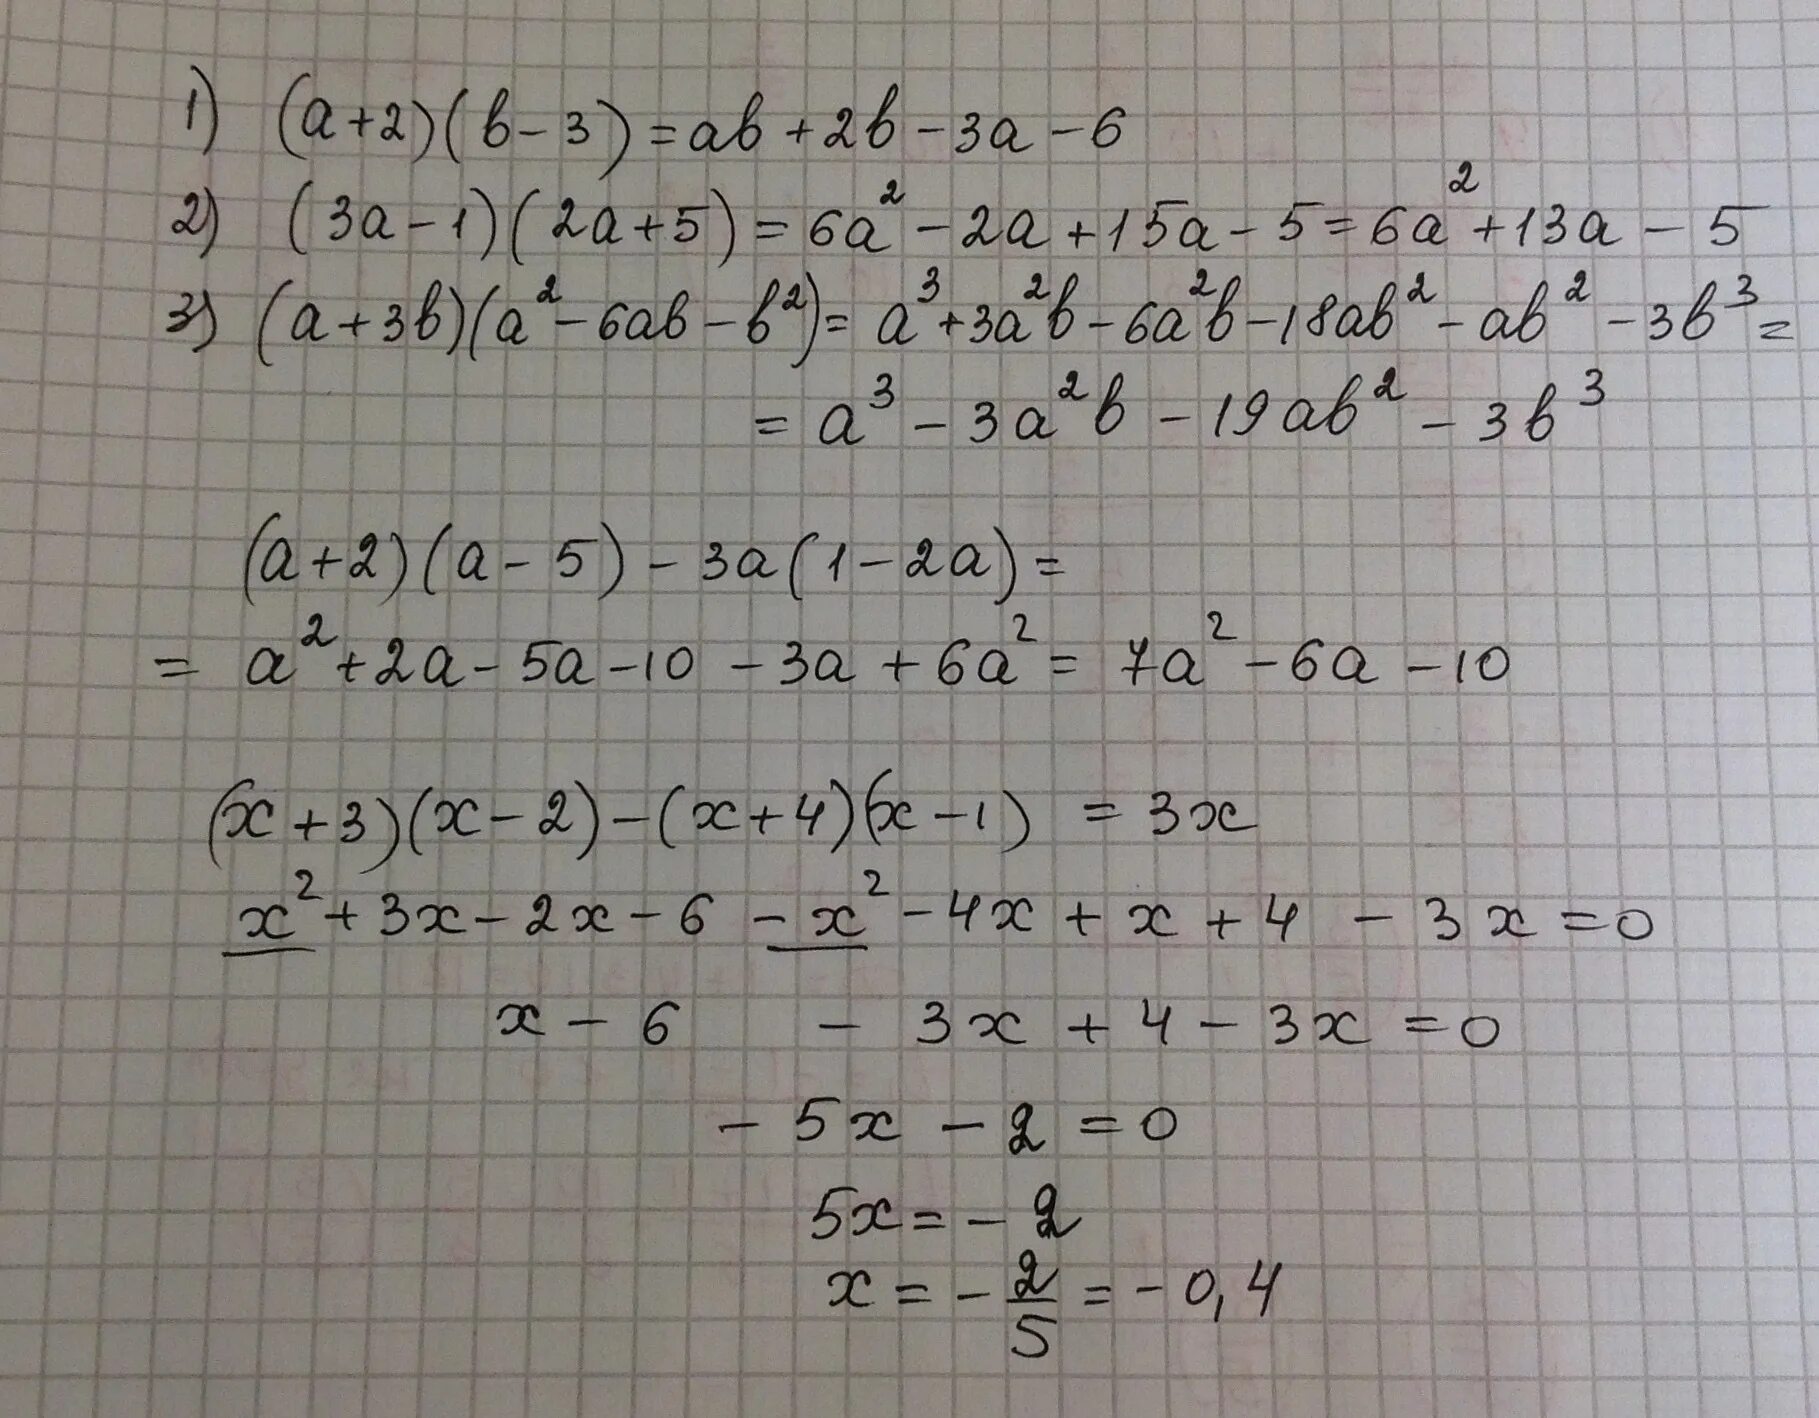 1) (a+2)(b-3)=ab+2b-3a-6
2) (3a-1)(2a+5)=6a²-2a+15a-5=6a²+13a-5
3) (a+3b)(a²-6ab-b²)=a³+3a²b-6a²b-18ab²-ab²-3b³=
=a³-3a²b-19ab²-3b³
(a+2)(a-5)-3a(1-2a)=
=a²+2a-5a-10-3a+6a²=7a²-6a-10
(x+3)(x-2)-(x+4)(x-1)=3x
x²+3x-2x-6-x²-4x+x+4-3x=0
x-6 -3x+4-3x=0
-5x-2=0
5x=-2
x=-2/5=-0,4